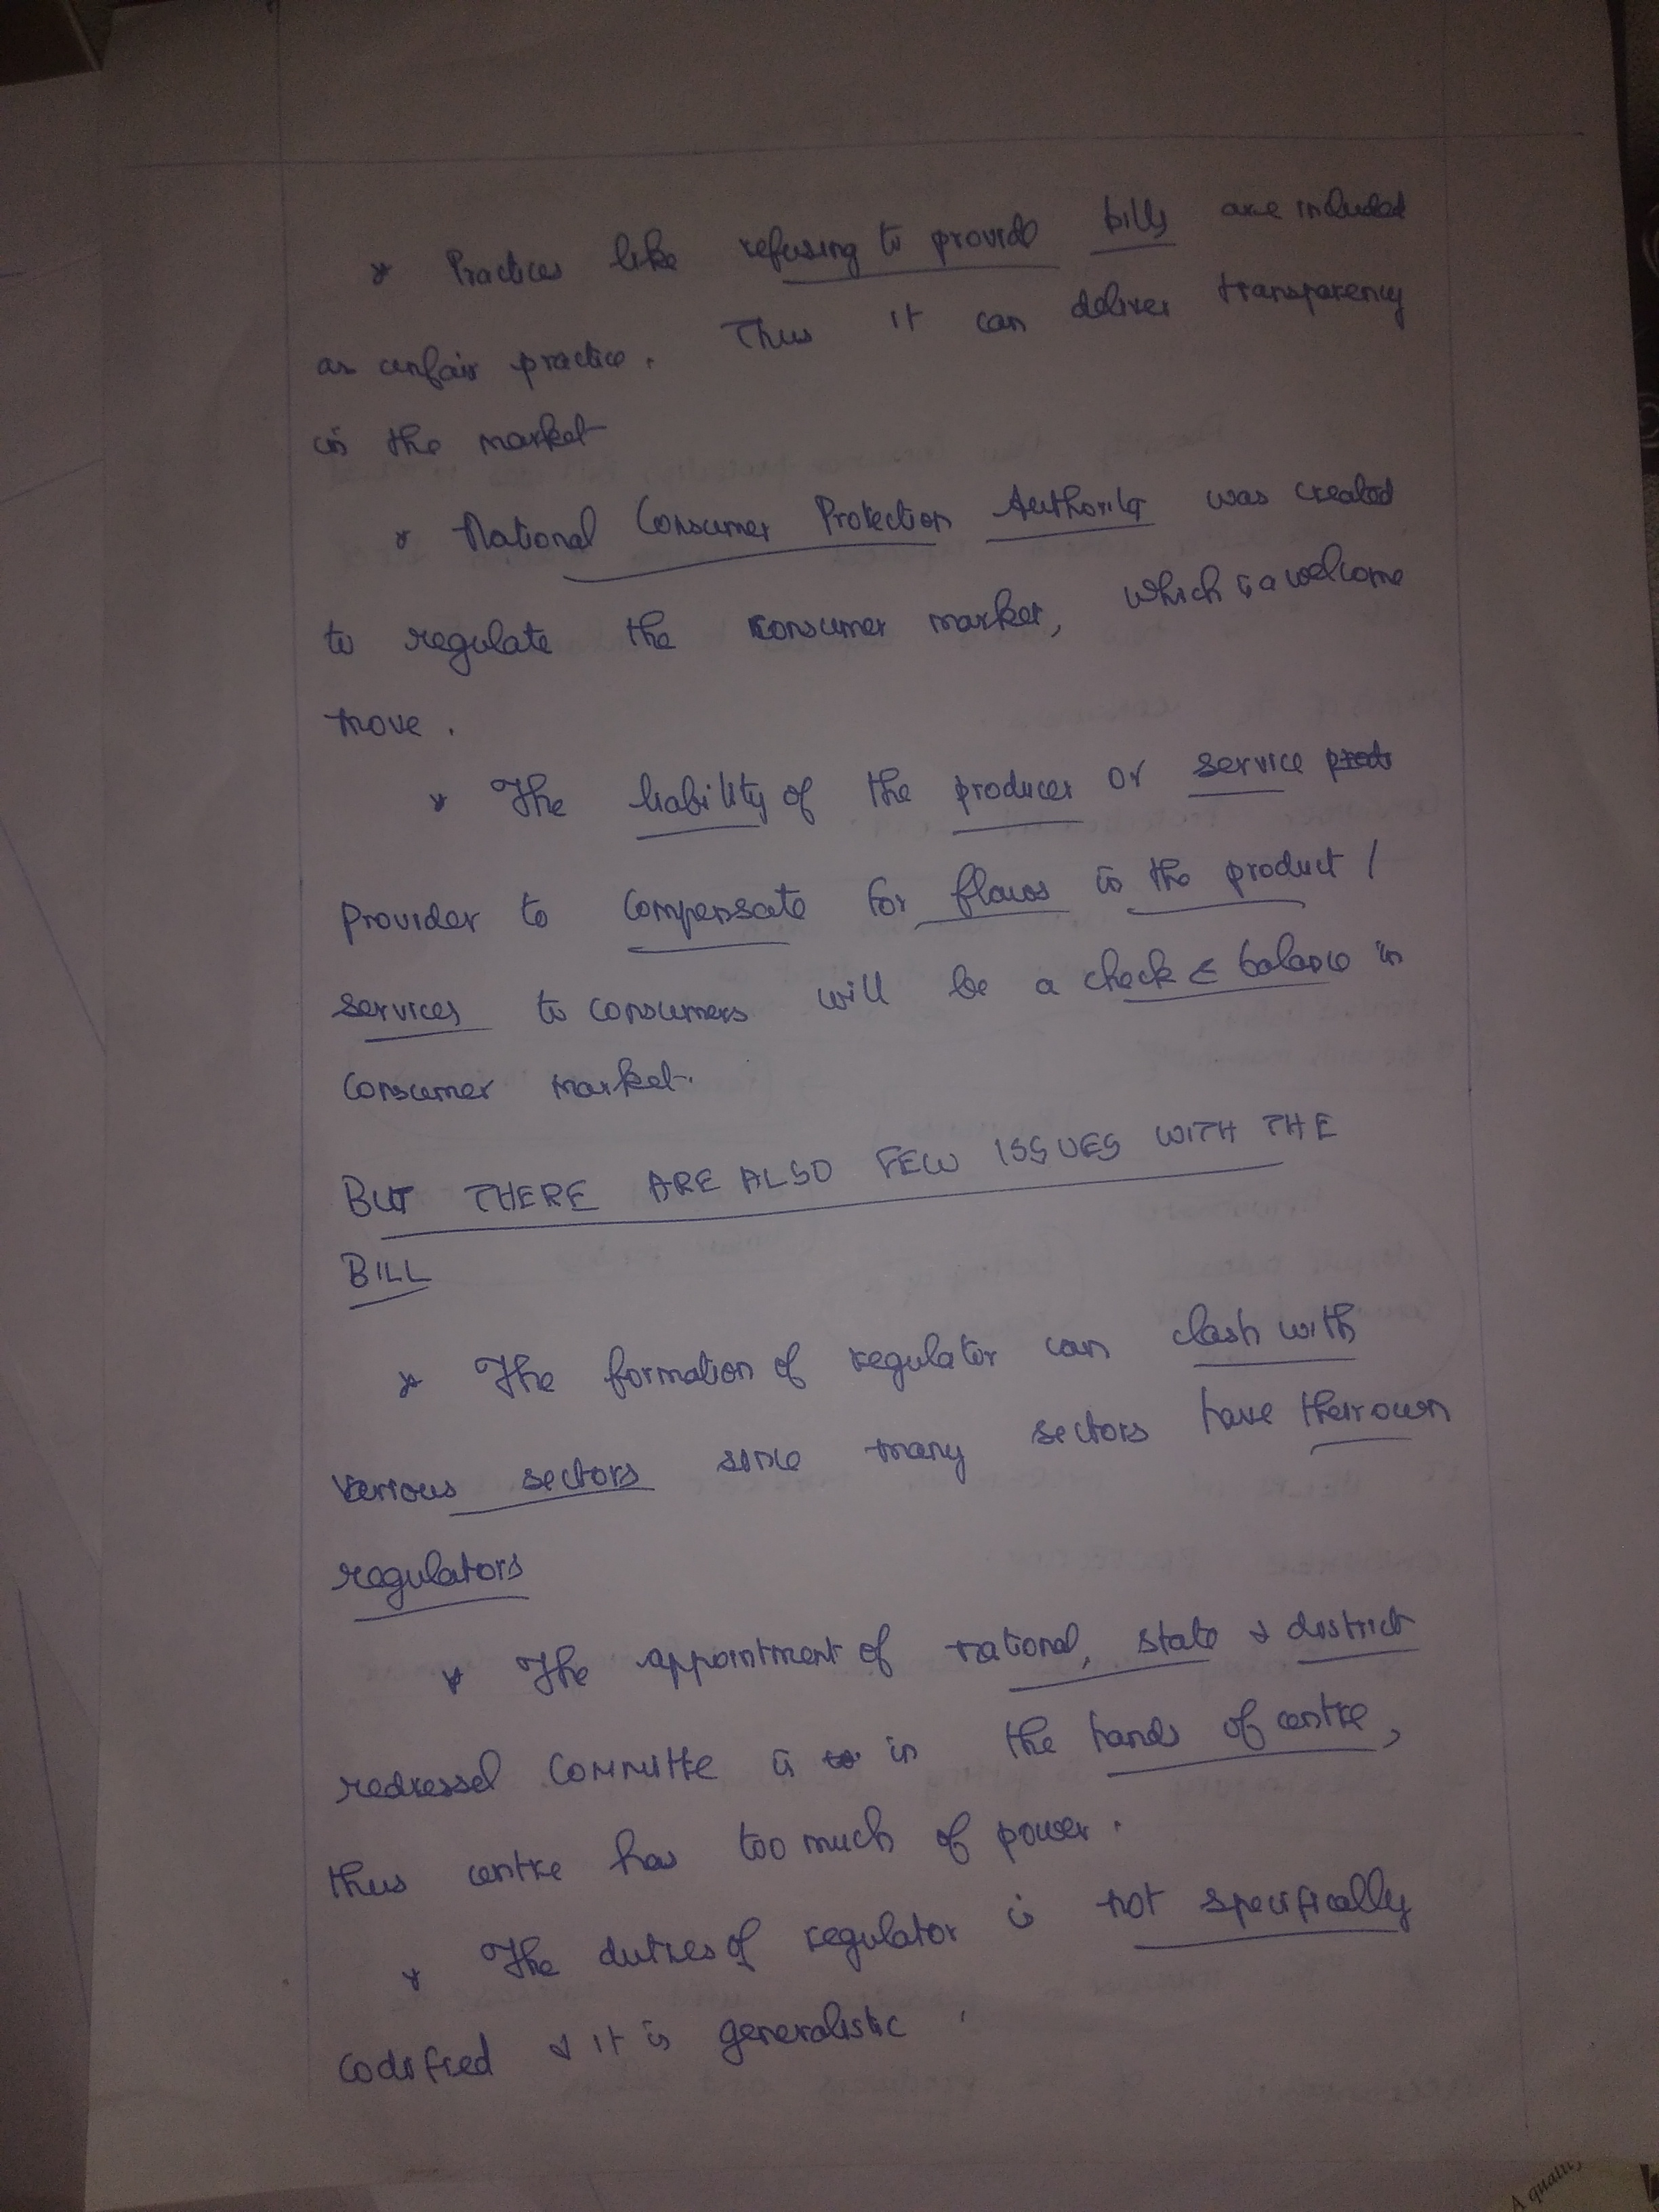 * Practices like refusing to provide bills are included
as unfair practice. Thus it can deliver transparency
in the market
* National Consumer Protection Authority was created
to regulate the consumer market, which is a welcome
move.
* The liability of the producer or service
provider to compensate for flaws in the product /
services to consumers will be a check & balance in
consumer market.
BUT THERE ARE ALSO FEW ISSUES WITH THE
BILL
* The formation of regulator can clash with
various sectors since many sectors have their own
regulators
* The appointment of national, state & district
redressel committe is in the hands of centre,
thus centre has too much of power.
* The duties of regulator is not specifically
codified & it is generalistic.
A quality